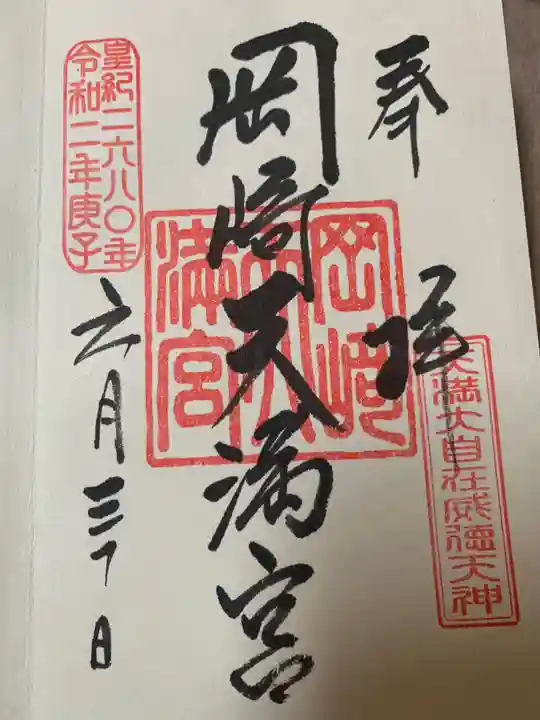 奉拝
天満大自在威徳天神
岡﨑天満宮
岡崎天満宮
皇紀二六八〇年
令和二年庚子
六月三十日